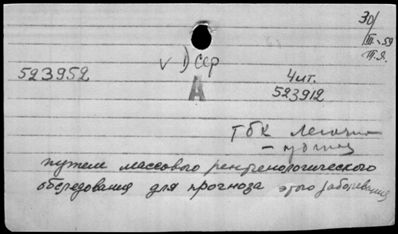 30/
III-59
v D ССР
523952
А
Чит.
523912
ТБК легочн
путем массового рентгенологического
обследования для прогноза этого заболевания